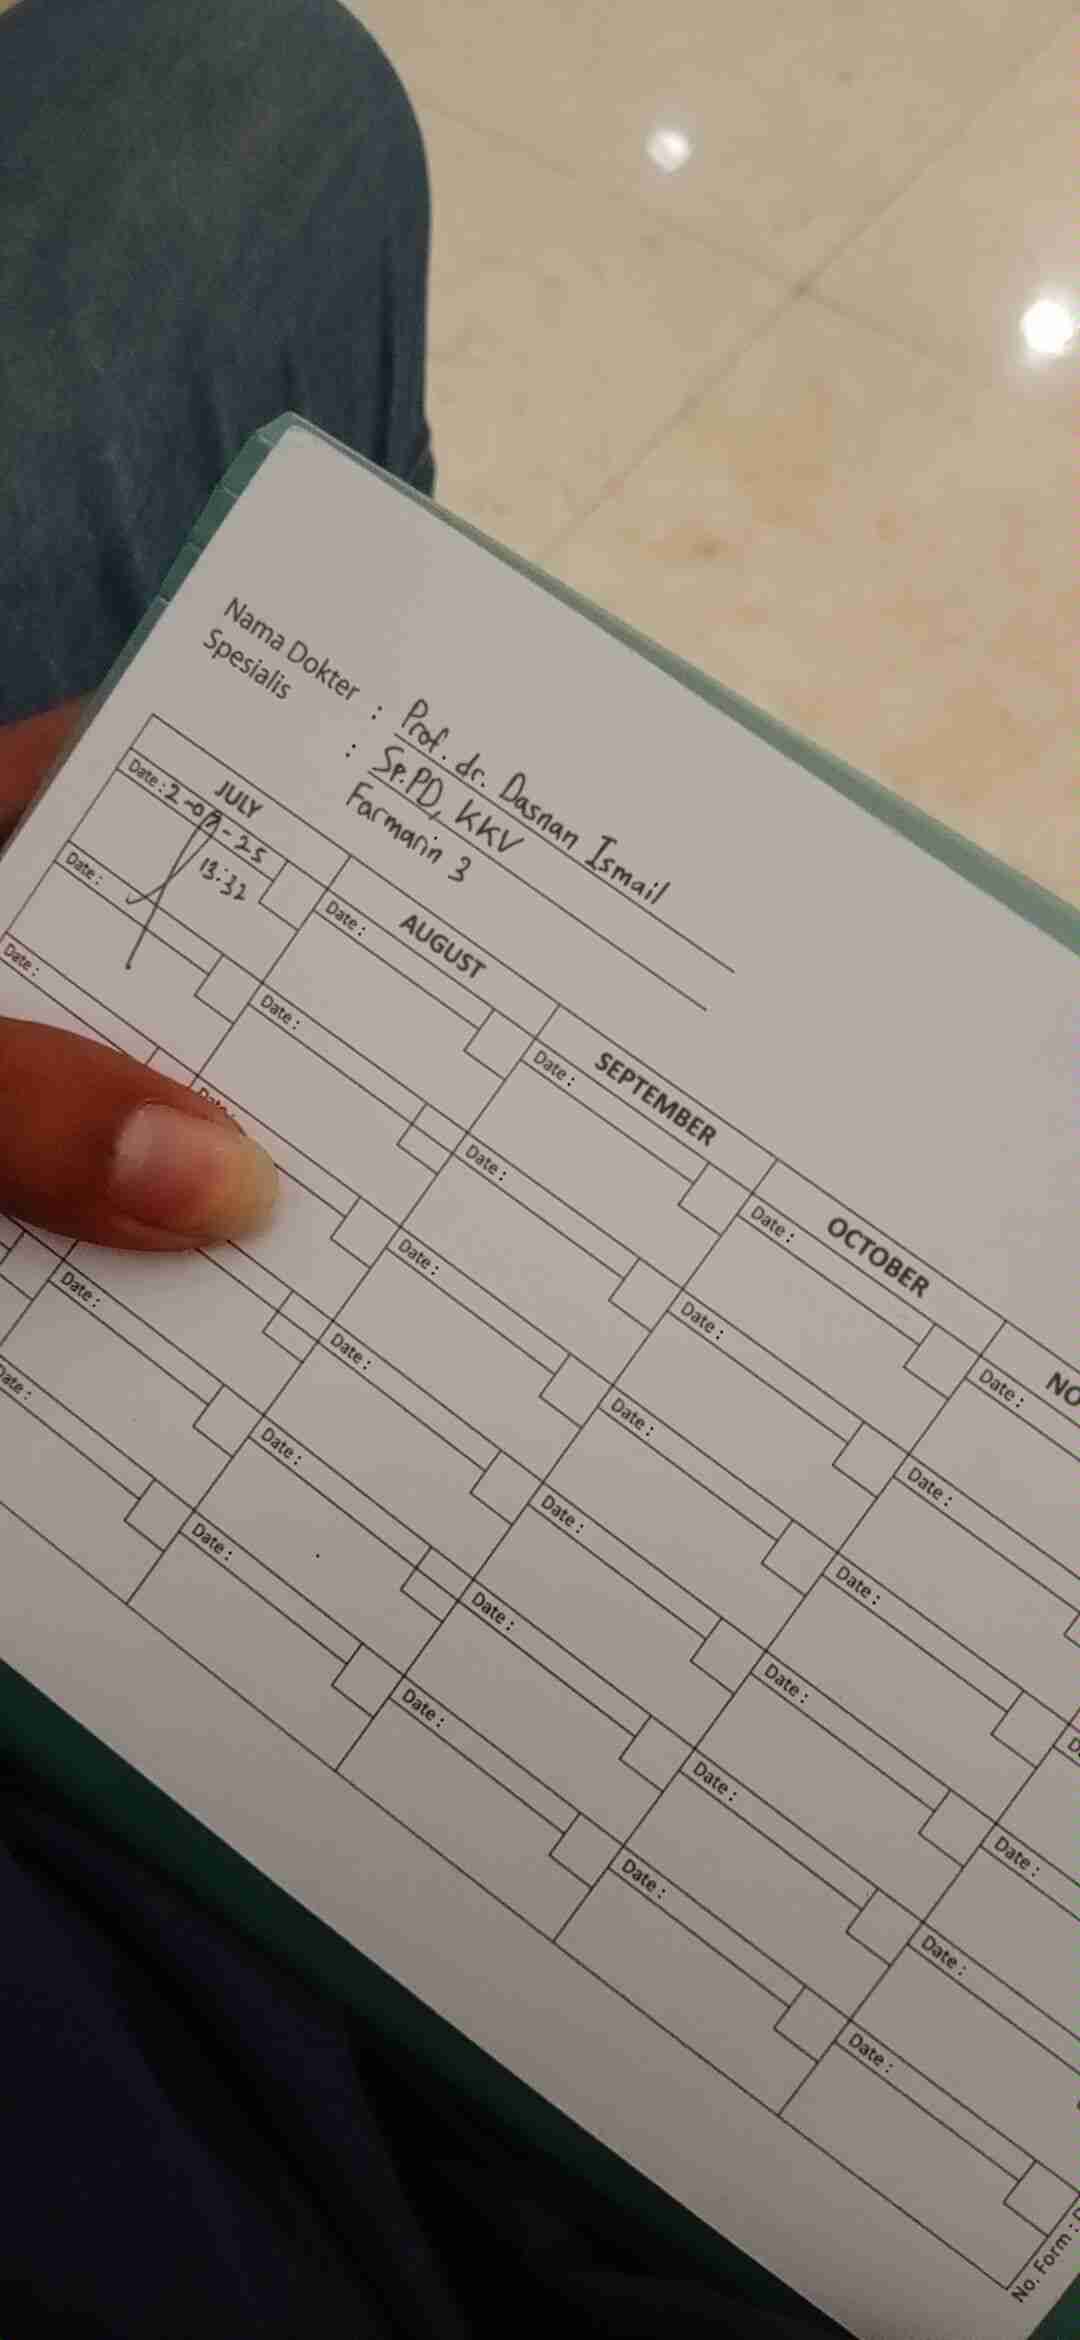 Nama Dokter : Prof. dr. Dasnan Ismail
Spesialis : Sp.PD, KKV
Farmarin 3
JULY AUGUST SEPTEMBER OCTOBER NO
Date : 2-07-25 Date : Date : Date : Date :
13:32
Date : Date : Date : Date : Date :
Date : Date : Date : Date :
Date : Date : Date : Date : Date :
Date : Date : Date : Date : Date :
Date : Date : Date : Date :
No. Form :